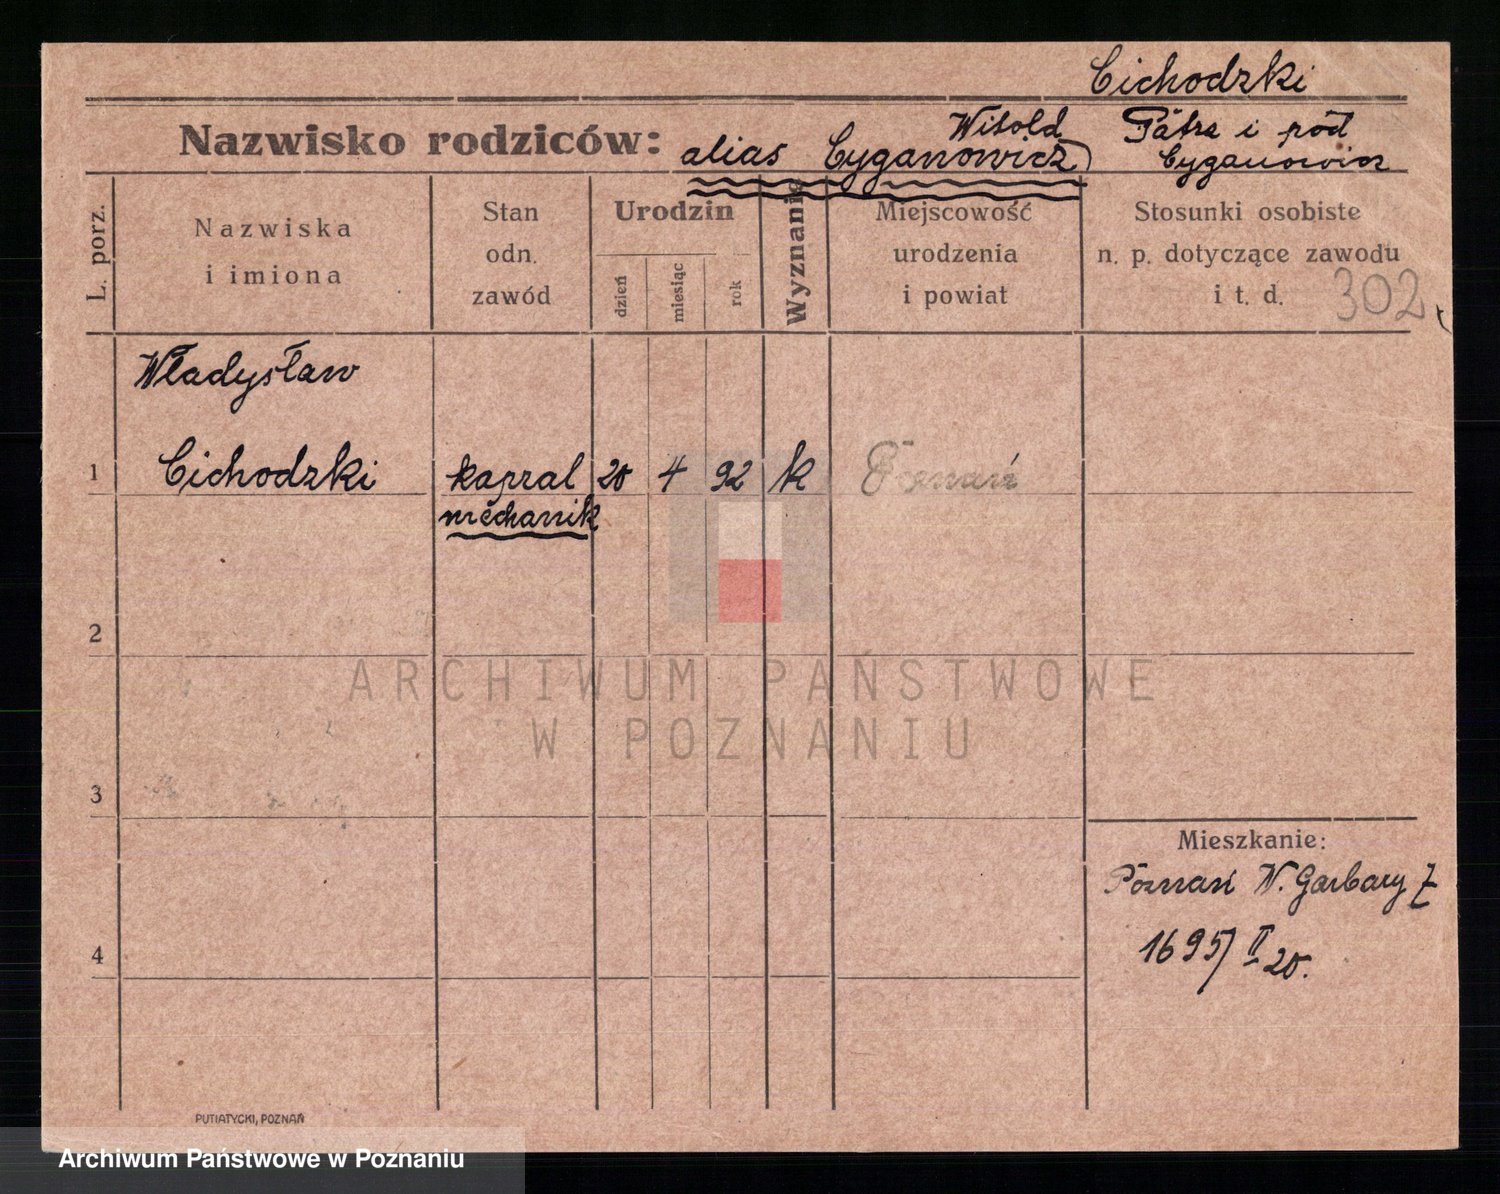 Cichodzki
Nazwisko rodziców: alias Witold Cyganowicz) Patrz i pod
Cyganowicz
L. porz.
Nazwiska
i imiona
Stan
odn.
zawód
Urodzin
dzień
miesiąc
rok
Wyznanie
Miejscowość
urodzenia
i powiat
Stosunki osobiste
n. p. dotyczące zawodu
i t. d.
302
Władysław
1 Cichodzki kapral 20 4 92 k Poznań
mechanik
2
ARCHIWUM PAŃSTWOWE
W POZNANIU
3
Mieszkanie:
Poznań W. Garbary 7
4
1695/II 20.
PUTIATYCKI, POZNAŃ
Archiwum Państwowe w Poznaniu